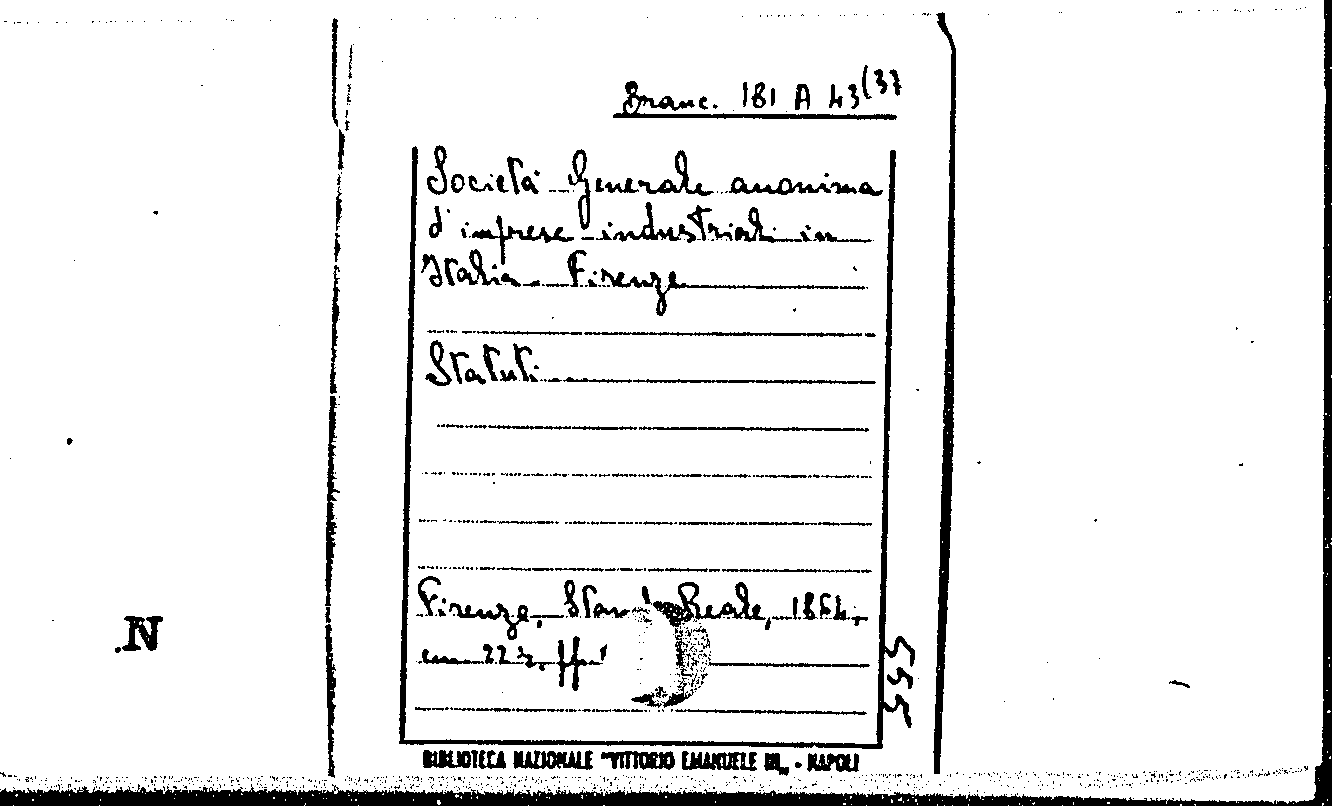 Branc. 181 A 43(37
Società Generale anonima
d'imprese industriali in
Italia. Firenze
Statuti.
Firenze, Reale, 1864,
cm 22
N
555
BIBLIOTECA NAZIONALE "VITTORIO EMANUELE III„ - NAPOLI